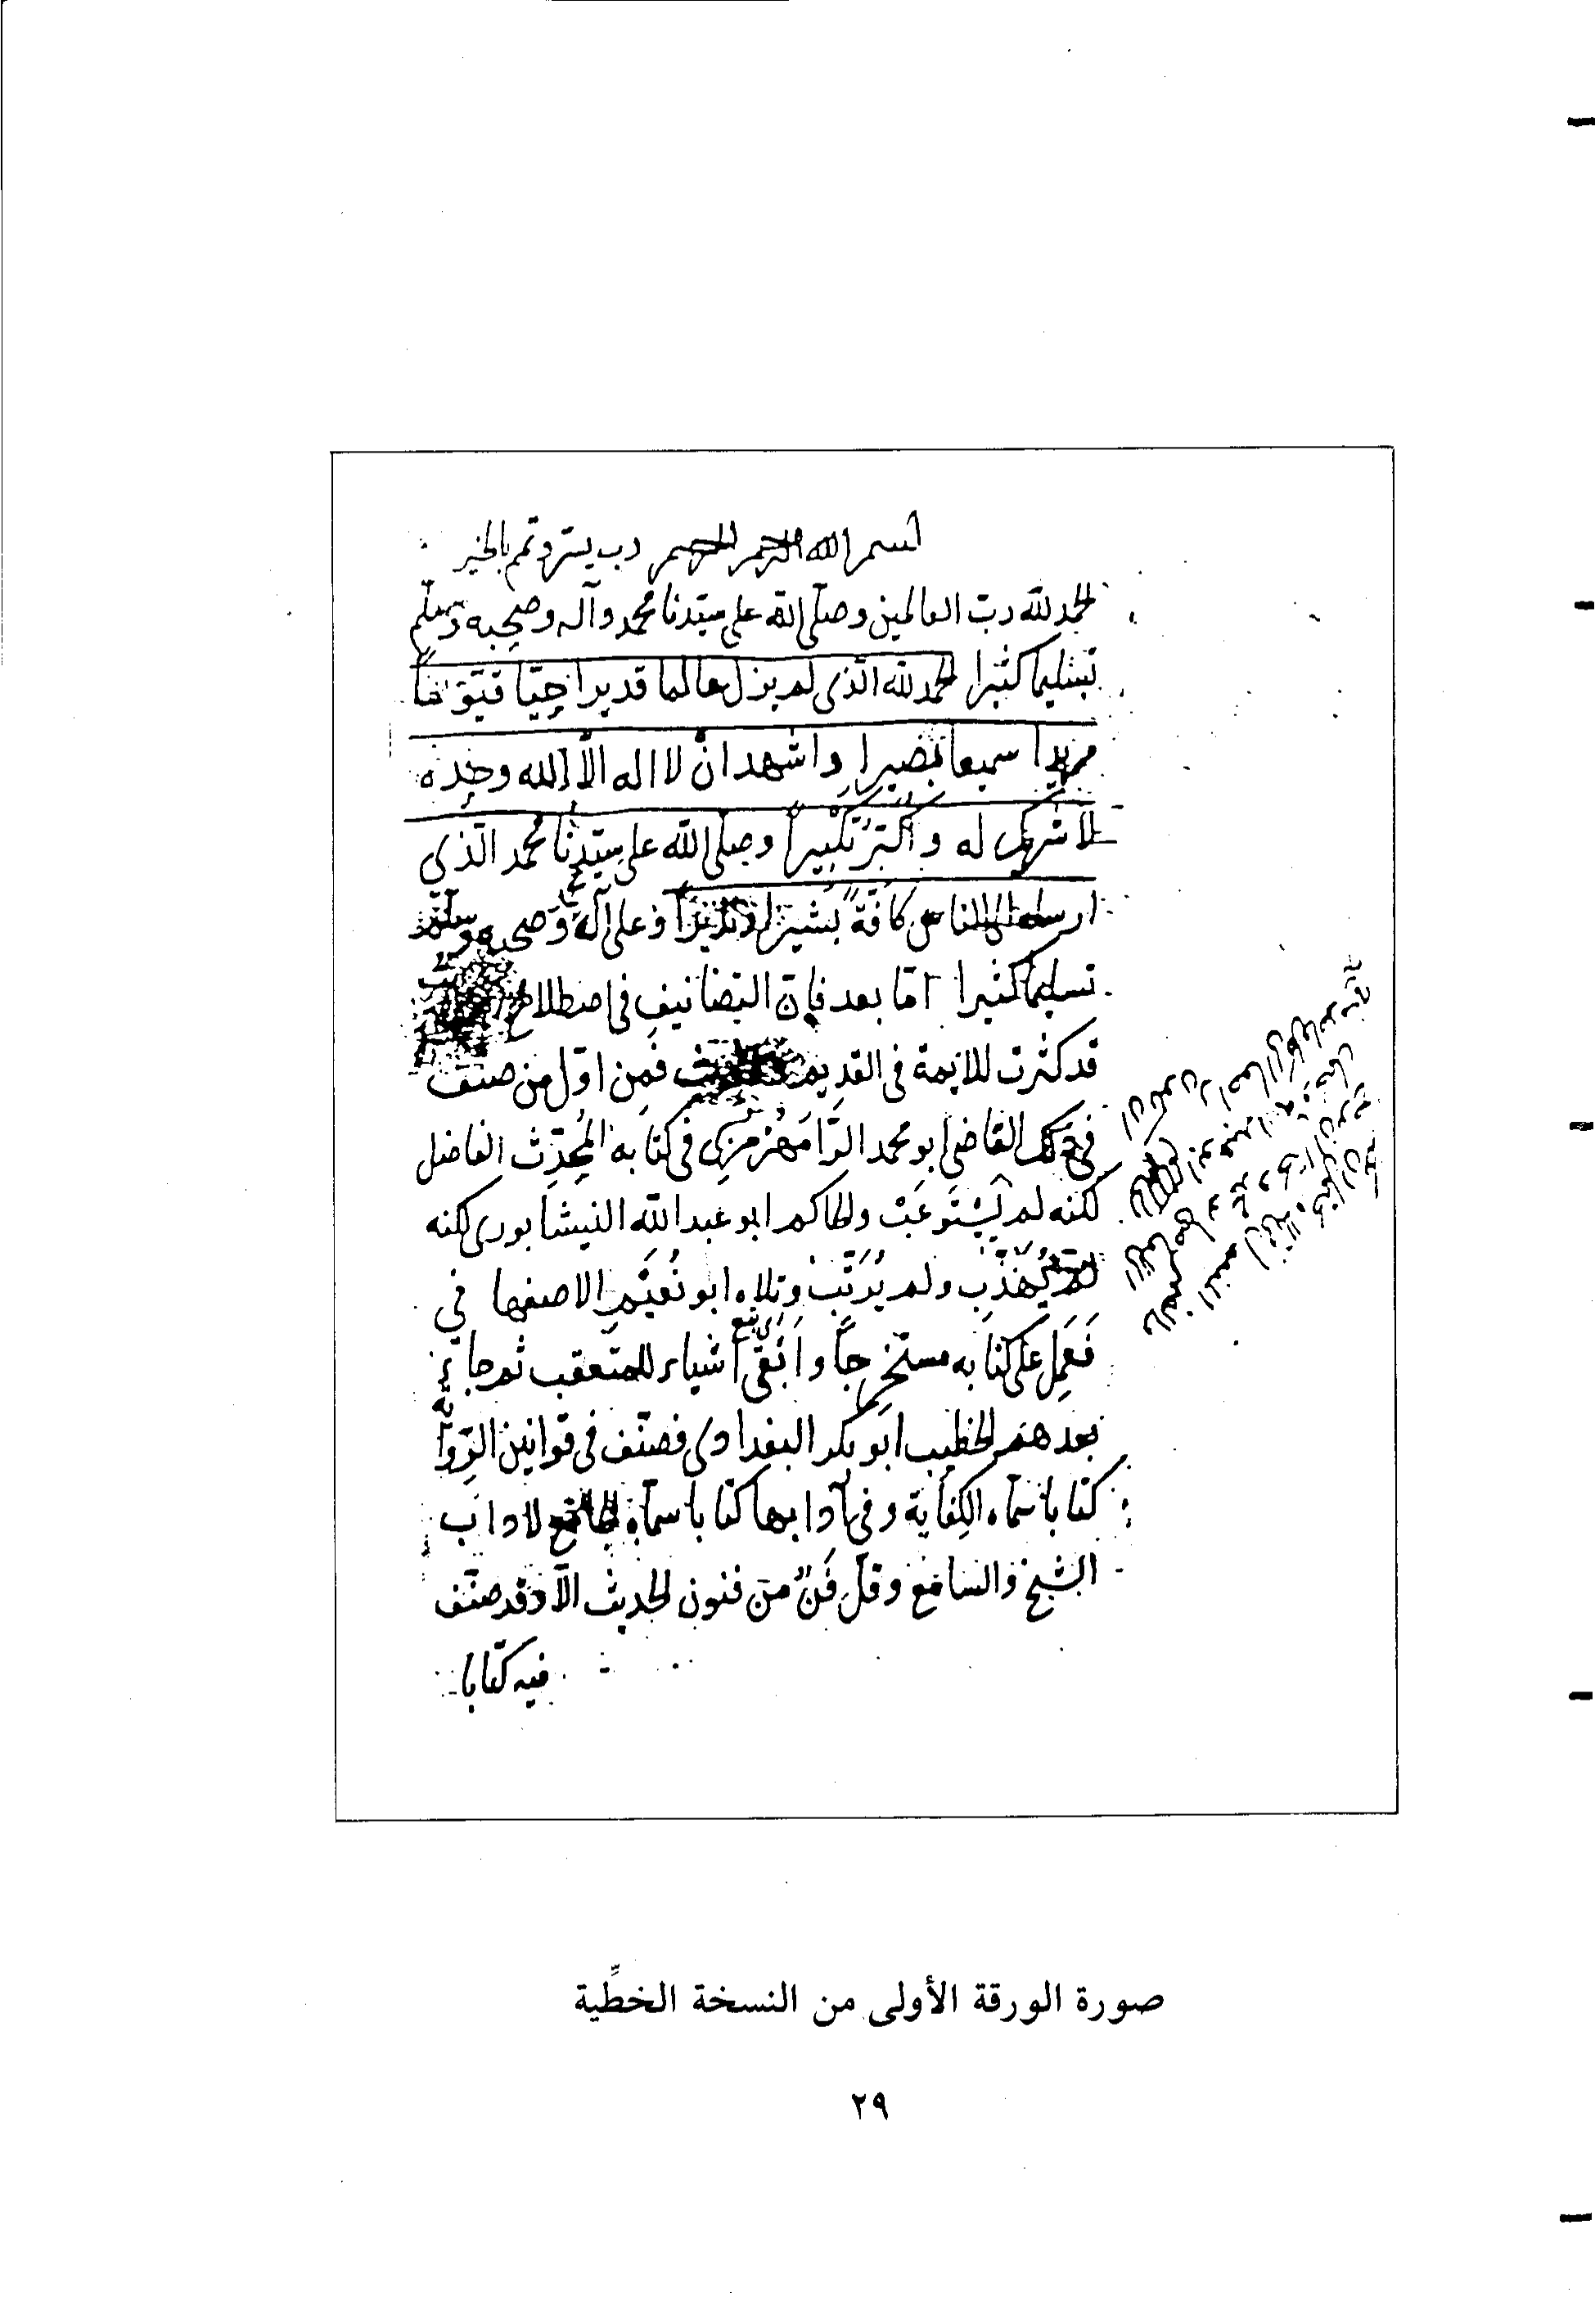 بسم الله الرحمن الرحيم رب يسّر وتمّم بالخير
الحمد لله ربّ العالمين وصلّى الله على سيّدنا محمد وآله وصحبه وسلّم
تسليما كثيرا الحمد لله الّذى لم يزل عالما قديرا حيّا قيّوما
مريدا سميعا بصيرا واشهد انّ لا اله الّا الله وحده
لا شريك له واكبّره تكبيرا وصلّى الله على سيّدنا محمد الّذى
ارسله الى الناس كافّة بشيرا ونذيرا وعلى آله وصحبه وسلّم
تسليما كثيرا امّا بعد فانّ التصانيف فى اصطلاح
قد كثرت للائمة فى القديم والحديث فمن اوّل من صنّف
فى ذلك القاضى ابو محمد الرّامهرمزى فى كتابه المحدّث الفاضل
لكنه لم يستوعب والحاكم ابو عبد الله النيشابورى لكنه
لم يهذّب ولم يرتّب وتلاه ابو نعيم الاصفهانى
فعمل على كتابه مستخرجاً وابقى اشياء للمتعقب ثم جاء
بعدهم الخطيب ابو بكر البغدادى فصنّف فى قوانين الرّواية
كتابا سمّاه الكفاية وفى آدابها كتابا سمّاه الجامع لاداب
الشيخ والسامع وقلّ فنّ من فنون الحديث الّا وقد صنّف
فيه كتابا
صورة الورقة الأولى من النسخة الخطِّية
٢٩